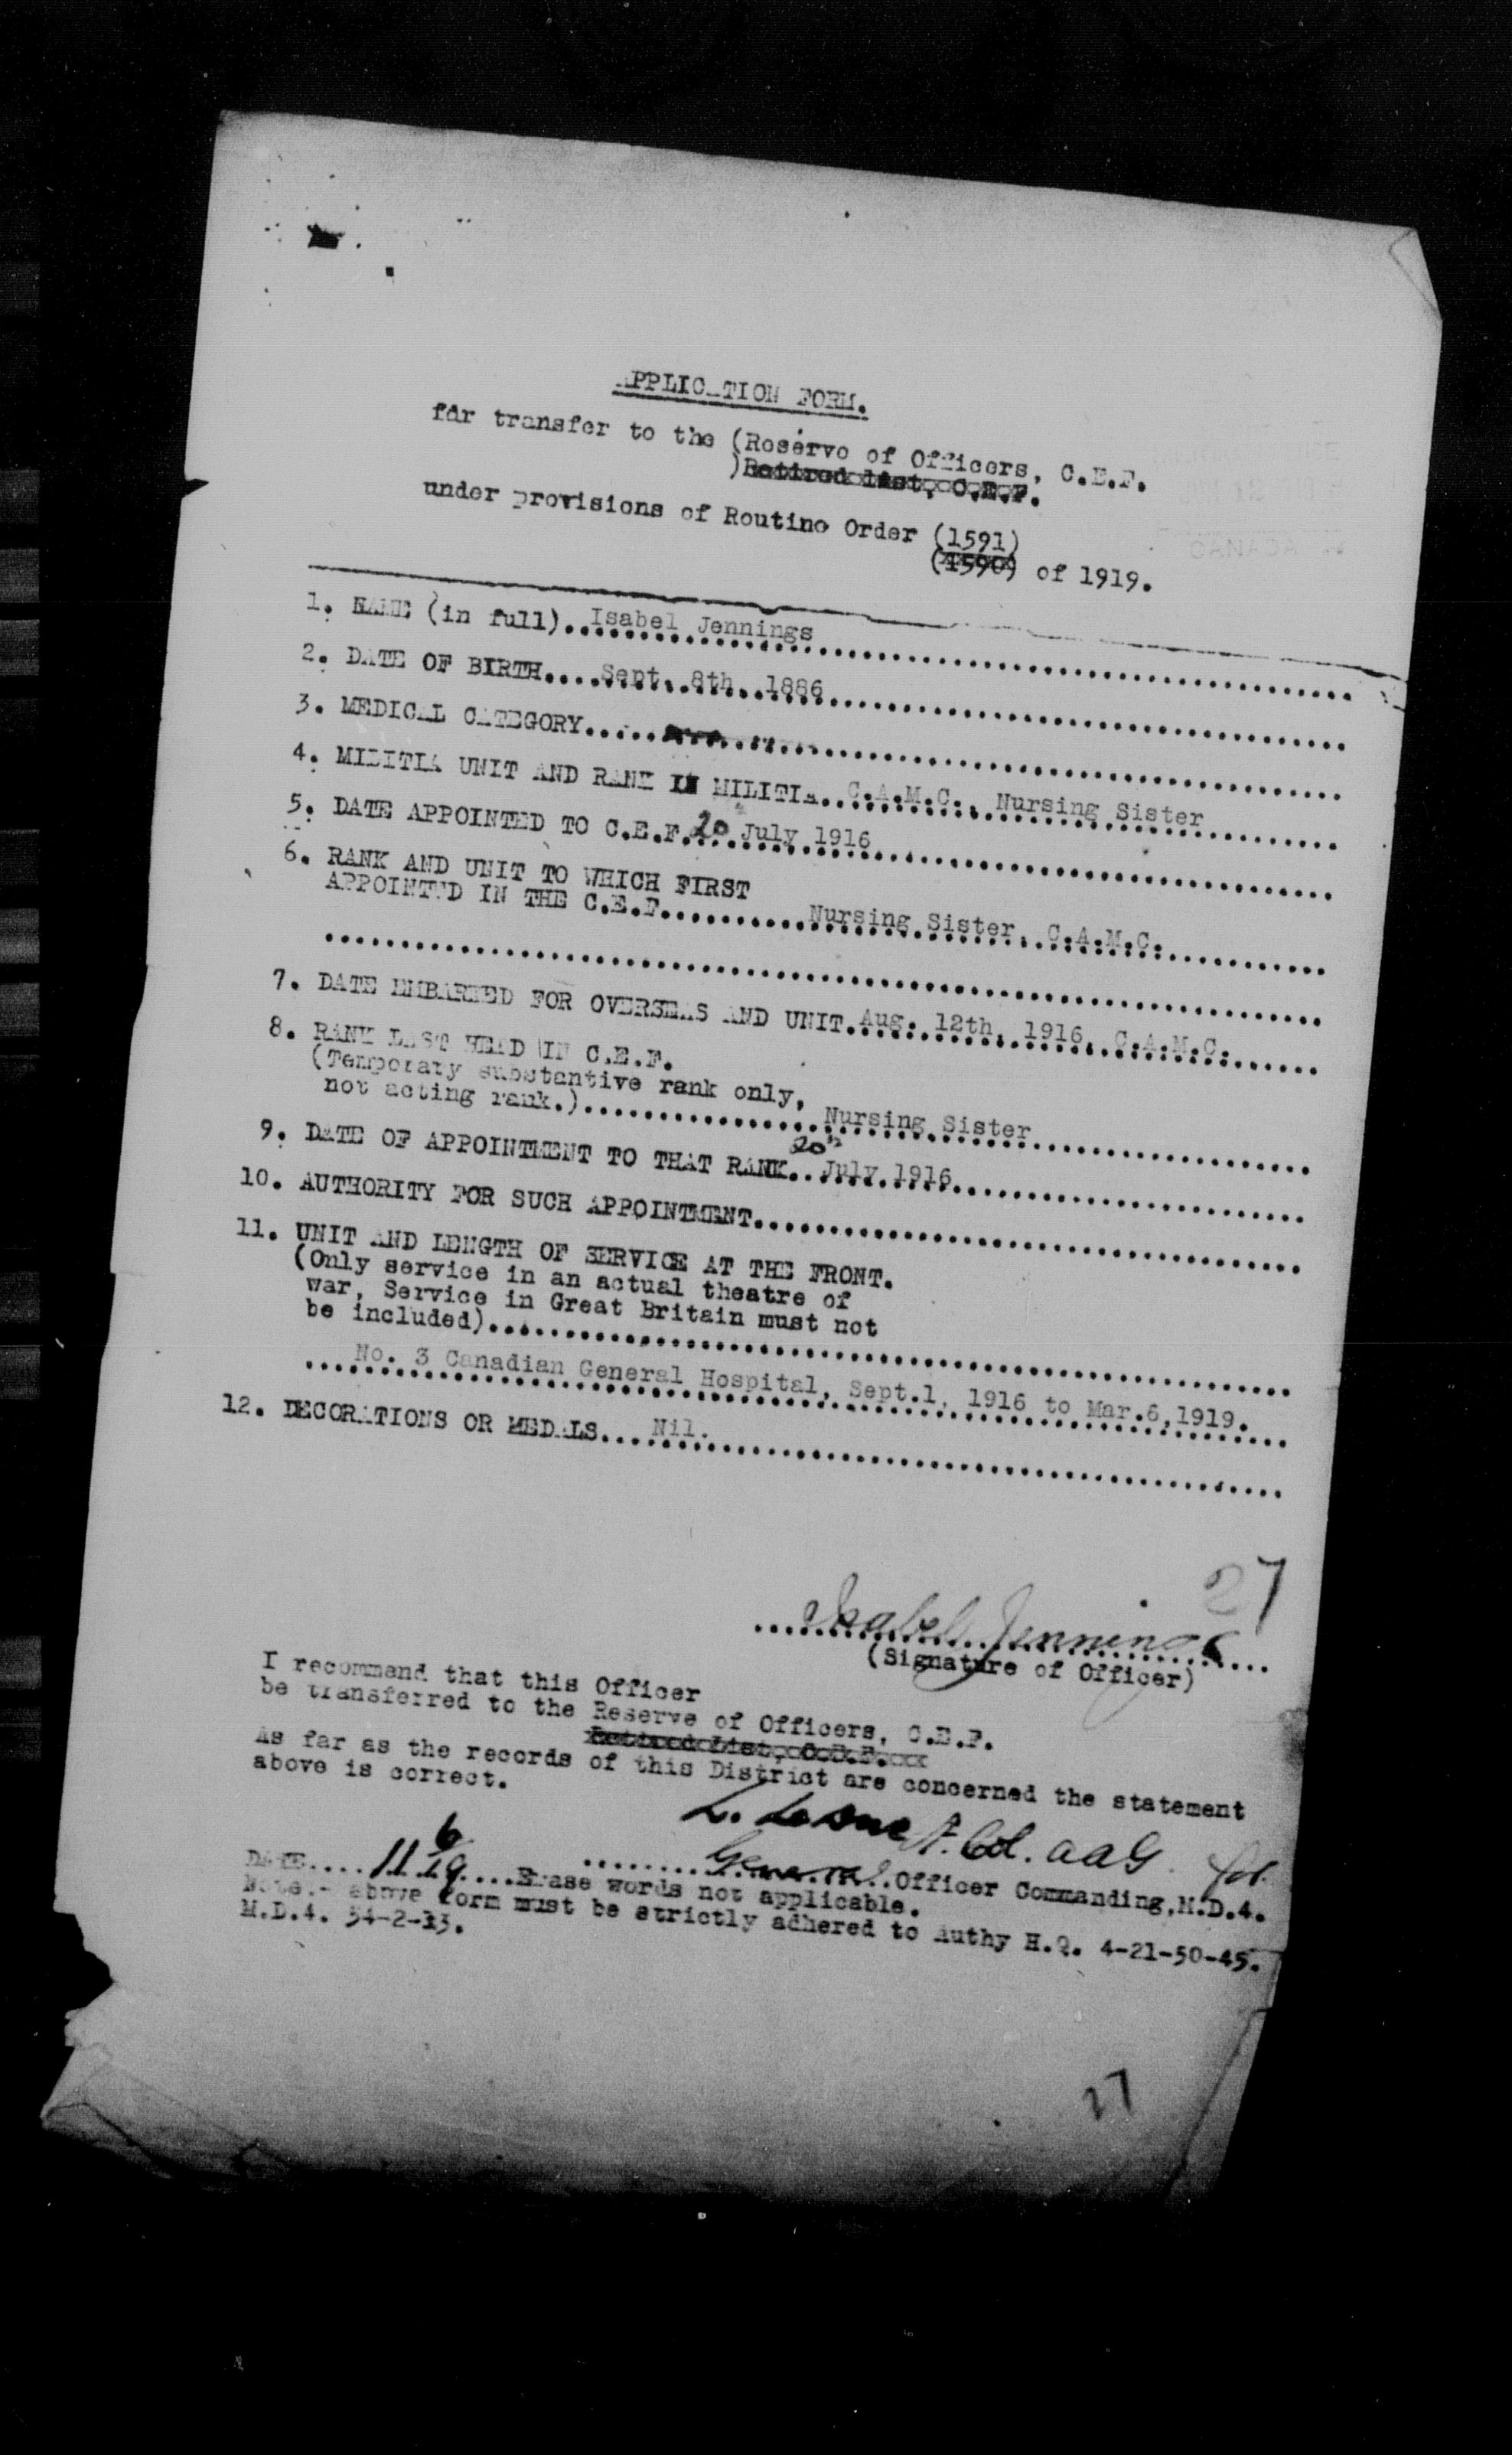 APPLICATION FORM.
for transfer to the (Reserve of Officers, C.E.F.
)Retired list, C.E.F.
under provisions of Routine Order (1591)
(1590) of 1919.
1. NAME (in full)..Isabel Jennings
2. DATE OF BIRTH....Sept. 8th, 1886
3. MEDICAL CATEGORY......
4. MILITIA UNIT AND RANK IN MILITIA..C.A.M.C., Nursing Sister
5. DATE APPOINTED TO C.E.F. 20th July 1916
6. RANK AND UNIT TO WHICH FIRST
APPOINTED IN THE C.E.F..........Nursing Sister, C.A.M.C.
7. DATE EMBARKED FOR OVERSEAS AND UNIT.Aug. 12th, 1916, C.A.M.C.
8. RANK LAST HEAD IN C.E.F.
(Temporary substantive rank only,
not acting rank.)................Nursing Sister
9. DATE OF APPOINTMENT TO THAT RANK..20th July 1916
10. AUTHORITY FOR SUCH APPOINTMENT......
11. UNIT AND LENGTH OF SERVICE AT THE FRONT.
(Only service in an actual theatre of
war, Service in Great Britain must not
be included)......
No. 3 Canadian General Hospital, Sept.1, 1916 to Mar.6,1919.
12. DECORATIONS OR MEDALS....Nil.
27
Isabel Jennings
(Signature of Officer)
I recommend that this Officer
be transferred to the Reserve of Officers, C.E.F.
Retired List, C.E.F.
As far as the records of this District are concerned the statement
above is correct.
Lt. Col. AAG for
General Officer Commanding,M.D.4.
DATE....11 6 19....Erase words not applicable.
Note.- above form must be strictly adhered to Authy H.Q. 4-21-50-45.
M.D.4. 54-2-13.
27